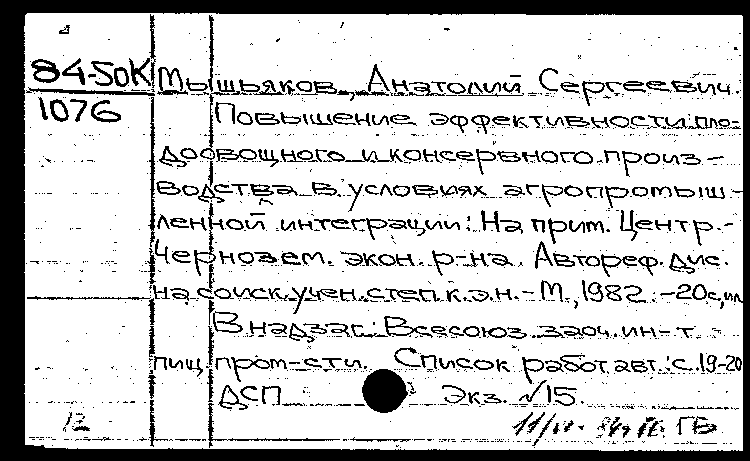 84-50К Мышьяков, Анатолий Сергеевич.
1076 Повышение эффективности пло-
доовощного и консервного произ-
водства в условиях агропромыш-
ленной интеграции: На прим. Центр.-
Чернозем. экон. р-на. Автореф. дис.
на соиск. учен. степ. к.э.н. - М., 1982. -20с, ил
В надзаг: Всесоюз. заоч. ин-т
пищ. пром-сти. Список работ авт.: с. 19-20
ДСП Экз. №15.
12 ГБ